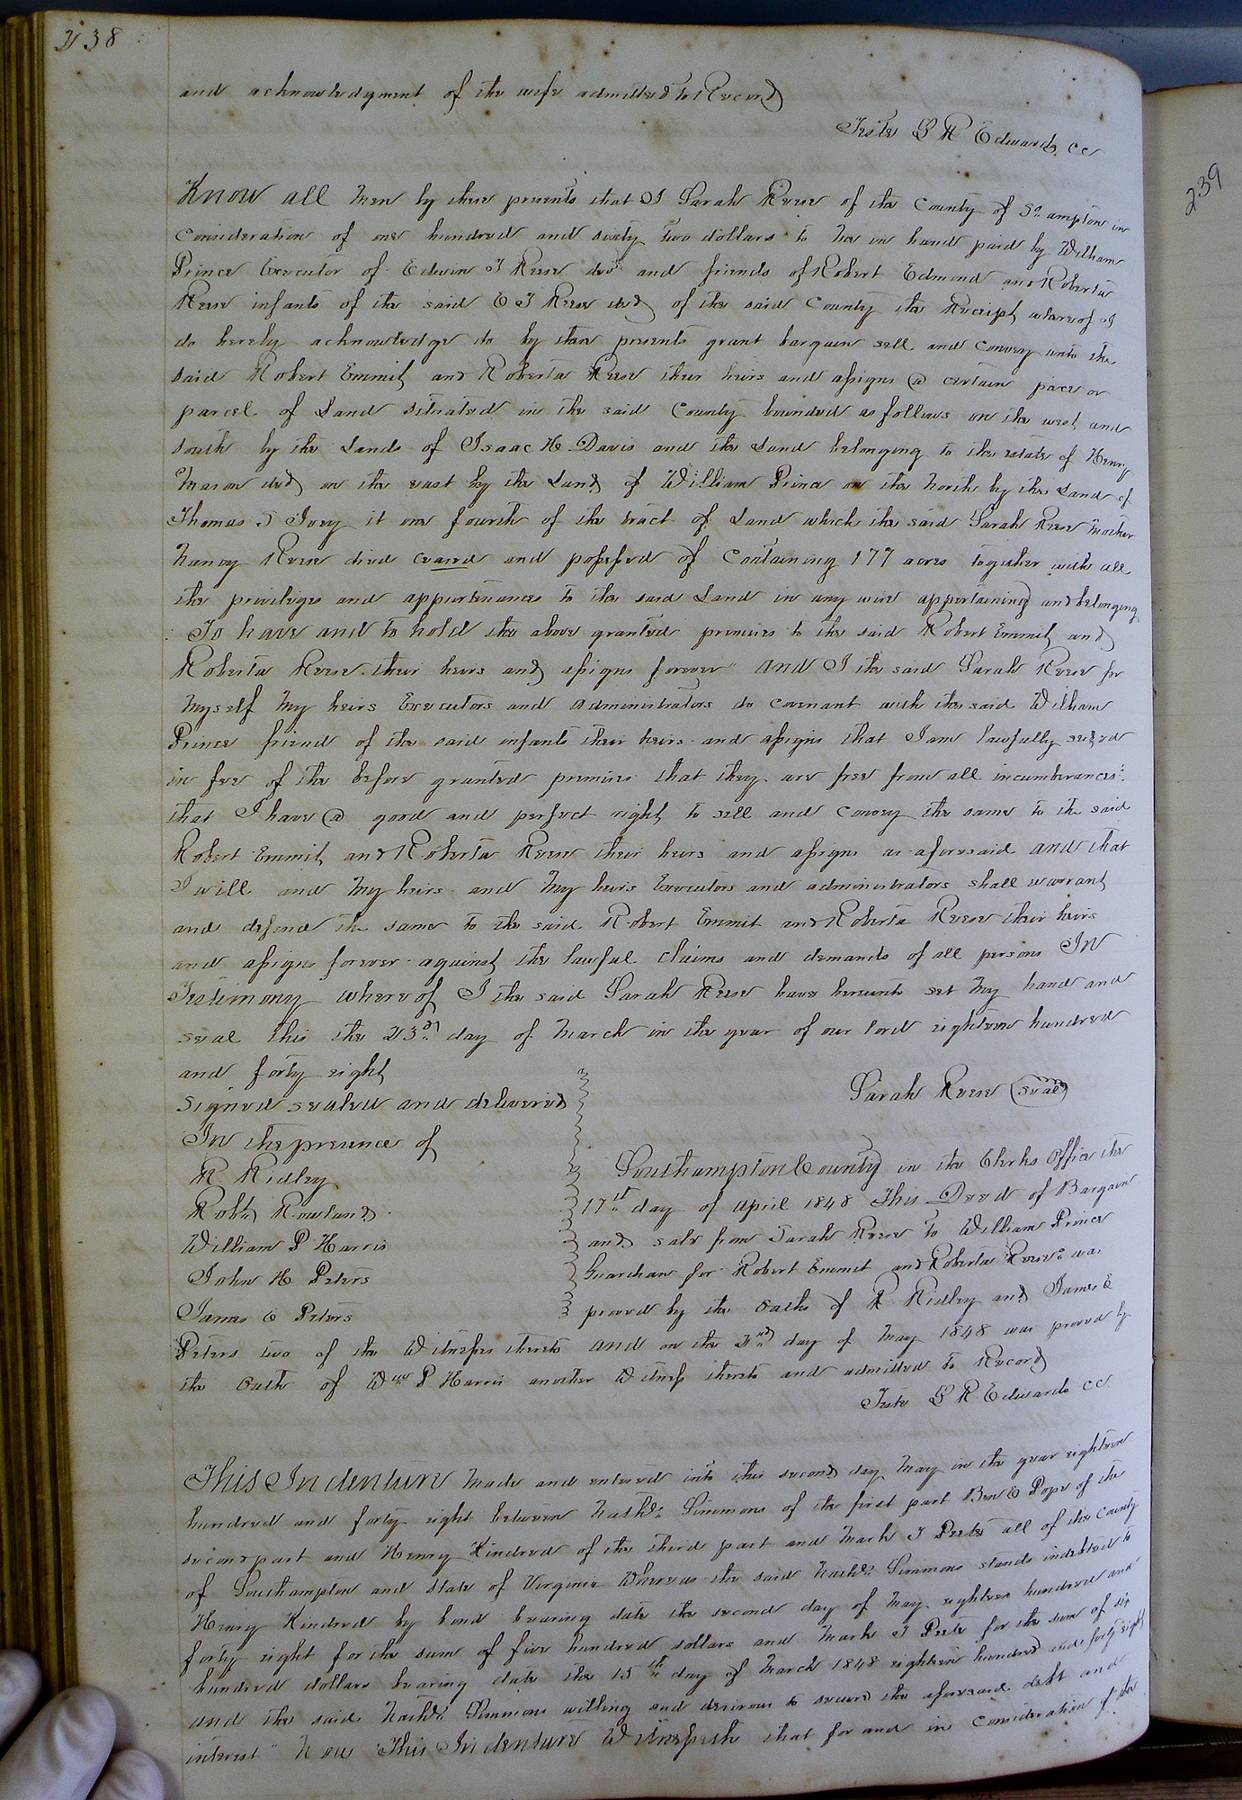 238
and acknowledgment of the wife admitted to Record
Teste L R Edwards. cc
239
Know all Men by these presents that I Sarah Reese of the County of So. ampton in
consideration of one hundred and sixty two dollars to me in hand paid by William
Prince Executor of Edwin T Reese decd and friends of Robert Edmond and Roberta
Reese infants of the said E T Reese decd of the said County the Receipt whereof I
do hereby acknowledge do by these presents grant bargain sell and convey unto the
said Robert Emmit and Roberta Reese their heirs and assigns a certain piece or
parcel of Land situated in the said County bounded as follows on the west and
south by the Lands of Isaac H Davis and the Land belonging to the estate of Henry
Mason decd on the east by the Land of William Prince on the North by the Land of
Thomas S Ivey it one fourth of the tract of Land which the said Sarah Reese Mother
Nancy Reese died ceased and possessed of Containing 177 acres together with all
the privileges and appurtenances to the said Land in any wise appertaining and belonging
To have and to hold the above granted premises to the said Robert Emmit and
Roberta Reese their heirs and assigns forever And I the said Sarah Reese for
Myself My heirs Executors and Administrators do covenant with the said William
Prince friend of the said infants their heirs and assigns that I am lawfully seized
in fee of the before granted premises that they are free from all incumberances
that I have a good and perfect right to sell and convey the same to the said
Robert Emmit and Roberta Reese their heirs and assigns as aforesaid and that
I will and My heirs and My heirs Executors and administrators shall warrant
and defend the same to the said Robert Emmit and Roberta Reese their heirs
and assigns forever against the lawful claims and demands of all persons In
Testimony whereof I the said Sarah Reese have hereunto set My hand and
seal this the 23rd day of March in the year of our lord eighteen hundred
and forty eight
Sarah Reese (seal)
Signed sealed and delivered
In the presence of
R Ridley
Robt Rowland
William P Harris
John H Peters
James E Peters
Southampton County in the Clerks Office the
17th day of April 1848 This Deed of Bargain
and sale from Sarah Reese to William Prince
Guardian for Robert Emmit and Roberta Reese was
proved by the Oaths of R Ridley and James E
Peters two of the Witnesses thereto and on the 2nd day of May 1848 was proved by
the Oath of Wm P Harris another Witness thereto and admitted to Record
Teste L R Edwards cc
This Indenture Made and entered into this second day May in the year eighteen
hundred and forty eight between Nathl Simmons of the first part Ben E Pope of the
second part and Henry Kindred of the third part and Mark J Peete all of the County
of Southampton and State of Virginia Whereas the said Nathl Simmons stands indebted to
Henry Kindred by bond bearing date the second day of May eighteen hundred and
forty eight for the sum of five hundred dollars and Mark J Peete for the sum of six
hundred dollars bearing date the 15th day of March 1848 eighteen hundred and forty eight
and the said Nathl Simmons willing and desirous to secure the aforesaid debt and
interest Now This Indenture Witnesseth that for and in consideration of the